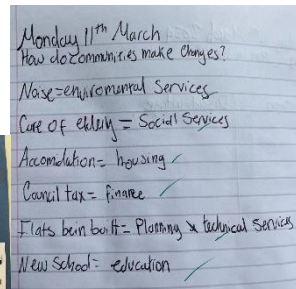 Monday 11th March
How do communities make changes?
Noise=enviromental Services
Care of eldery = Social Services
Accomdation= housing
Council tax = finance
Flats bein built= Planning & technical services
New School= education